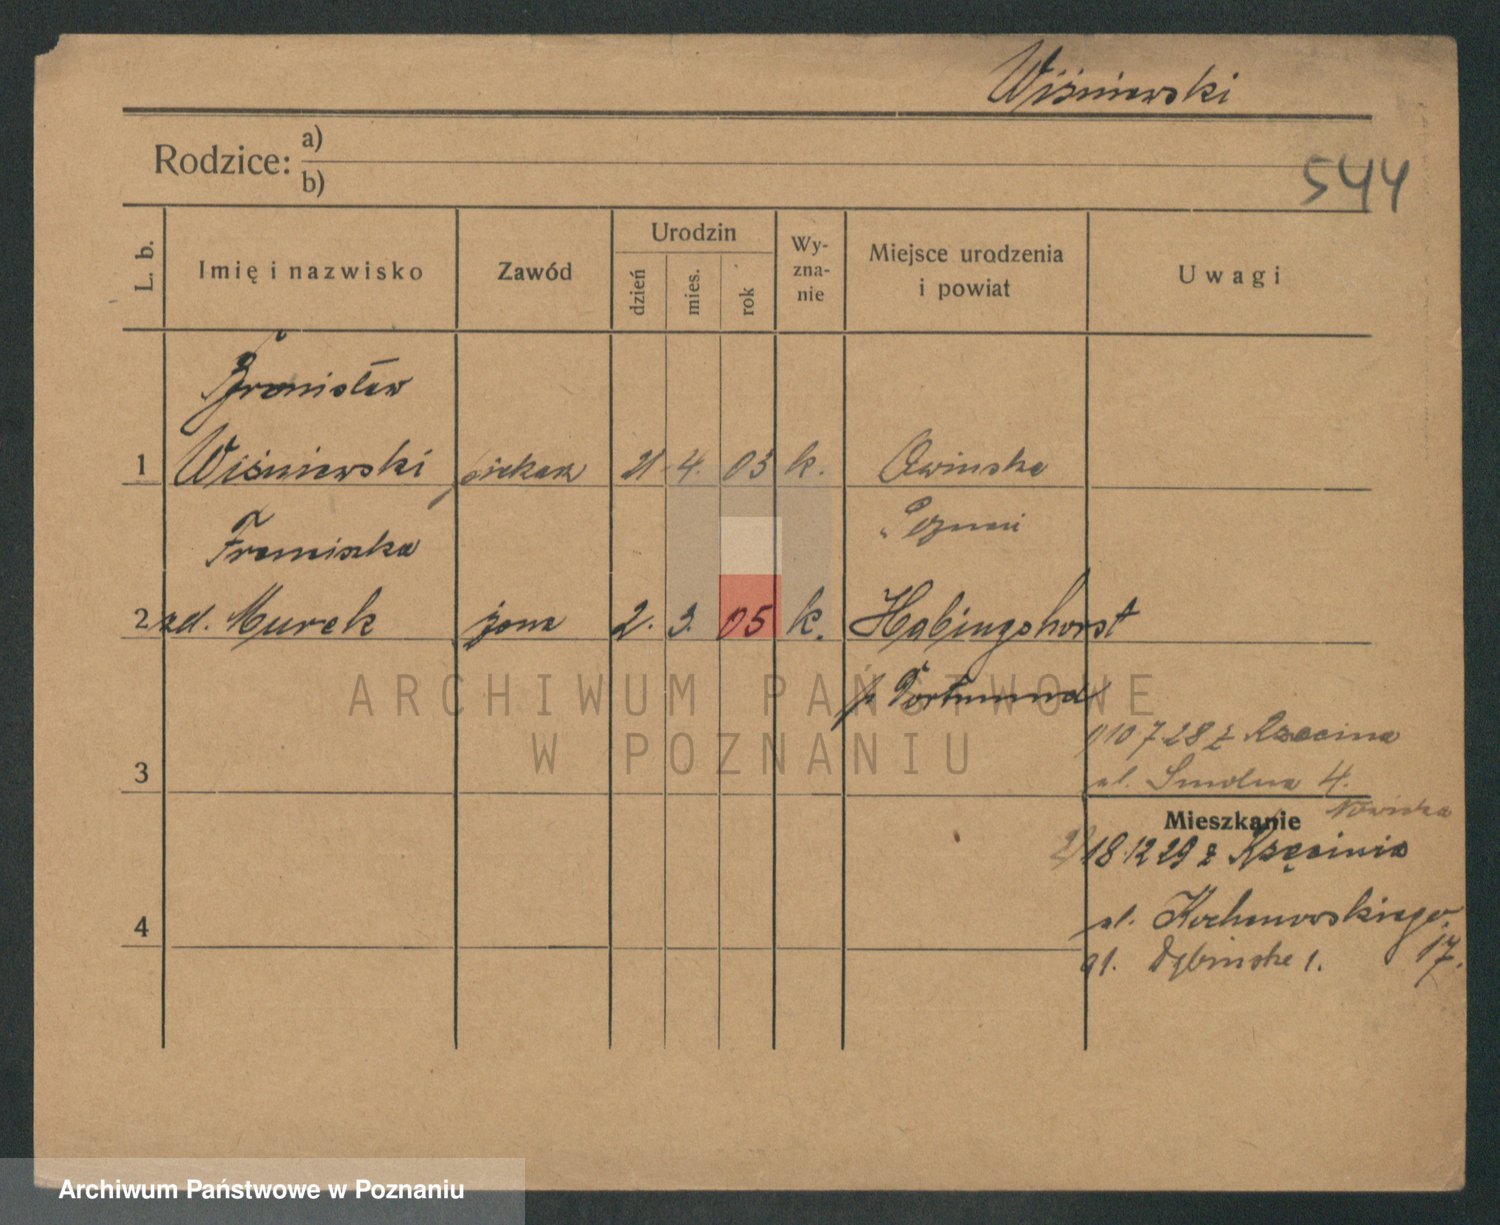 Wiśniewski
Rodzice: a)
b)
544
L. b.
Imię i nazwisko
Zawód
Urodzin
dzień
mies.
rok
Wy-
zna-
nie
Miejsce urodzenia
i powiat
Uwagi
Bronisław
1 Wiśniewski piekarz 21. 4. 03 k. Owinska
Poznań
Franciszka
2 zd. Murek żona 2. 3. 05 k. Habingshorst
p Dortmund
3
10 7 28 z
ul. Smolna 4.
Mieszkanie
18.12 29 z
ul. Kochanowskiego
17.
4
Dębinska 1.
ARCHIWUM PAŃSTWOWE
W POZNANIU
Archiwum Państwowe w Poznaniu